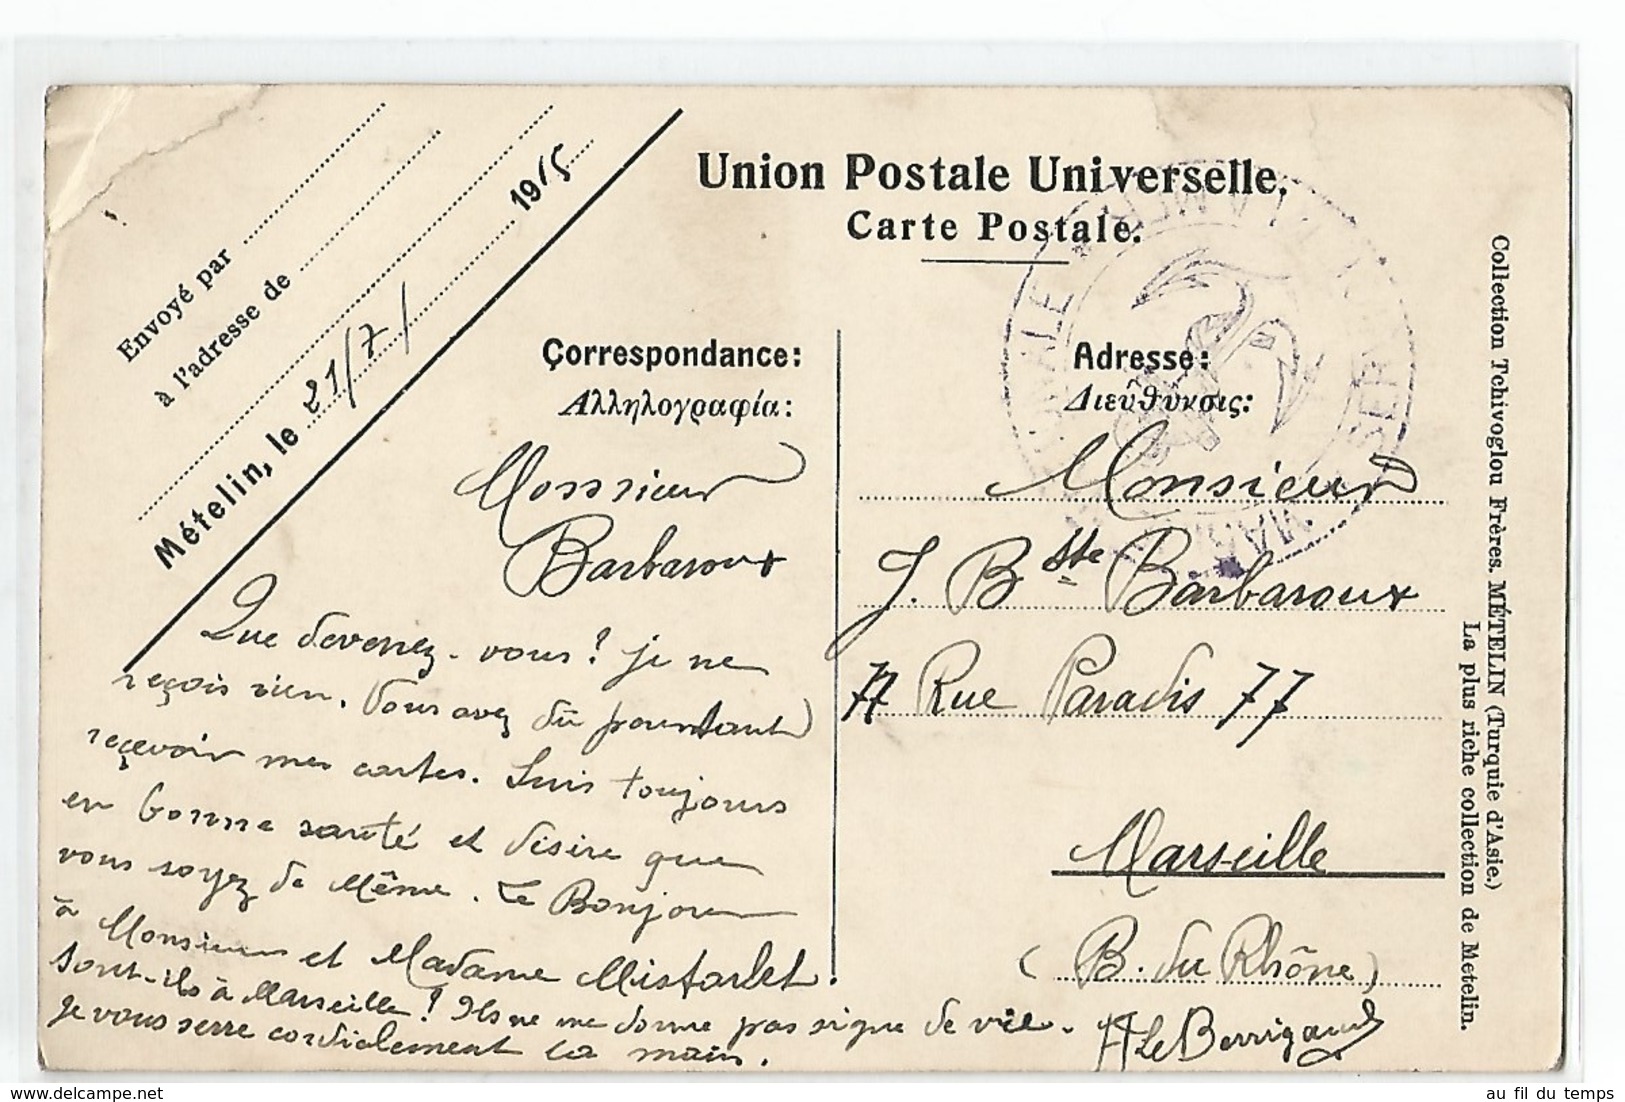 Envoyé par
à l'adresse de
Mételin, le 21/7/ 1915
Union Postale Universelle.
Carte Postale.
Correspondance:
Αλληλογραφία:
Adresse:
Διεύθυνσις:
Monsieur
Barbaroux
Que devenez-vous? je ne
reçois rien. Vous avez dû pourtant
reçevoir mes cartes. Suis toujours
en bonne santé et désire que
vous soyez de même. Le Bonjour
à Monsieur et Madame Mistarlet.
Sont-ils à Marseille? Ils ne me donne pas signe de vie.
Je vous serre cordialement la main.
Monsieur
J. Bste Barbaroux
77 Rue Paradis 77
Marseille
(B. du Rhône)
A Le Berrigaud
Collection Tchivoglou Frères. MÉTELIN (Turquie d'Asie.)
La plus riche collection de Metelin.
au fil du temps